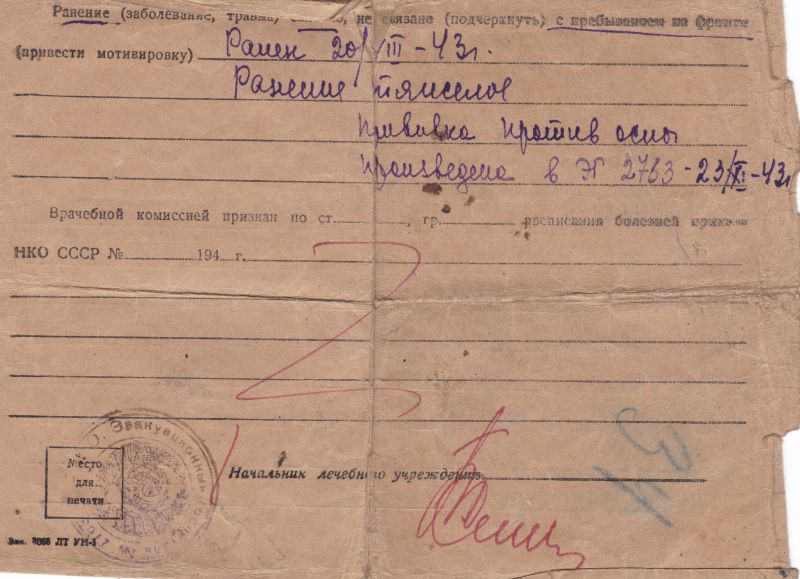 Ранение (заболевание, травма) связано, не связано (подчеркнуть) с пребыванием на фронте
(привести мотивировку) Ранен 20/III-43г.
Ранение тяжелое
Прививка против оспы
произведена в ЭГ 2763 - 23/XI-43г
Врачебной комиссией признан по ст. , гр. расписания болезней приказа
НКО СССР № 194 г.
Место
для
печати
Эвакуационный
Начальник лечебного учреждения
Зак. 3056 ЛТ УН-1